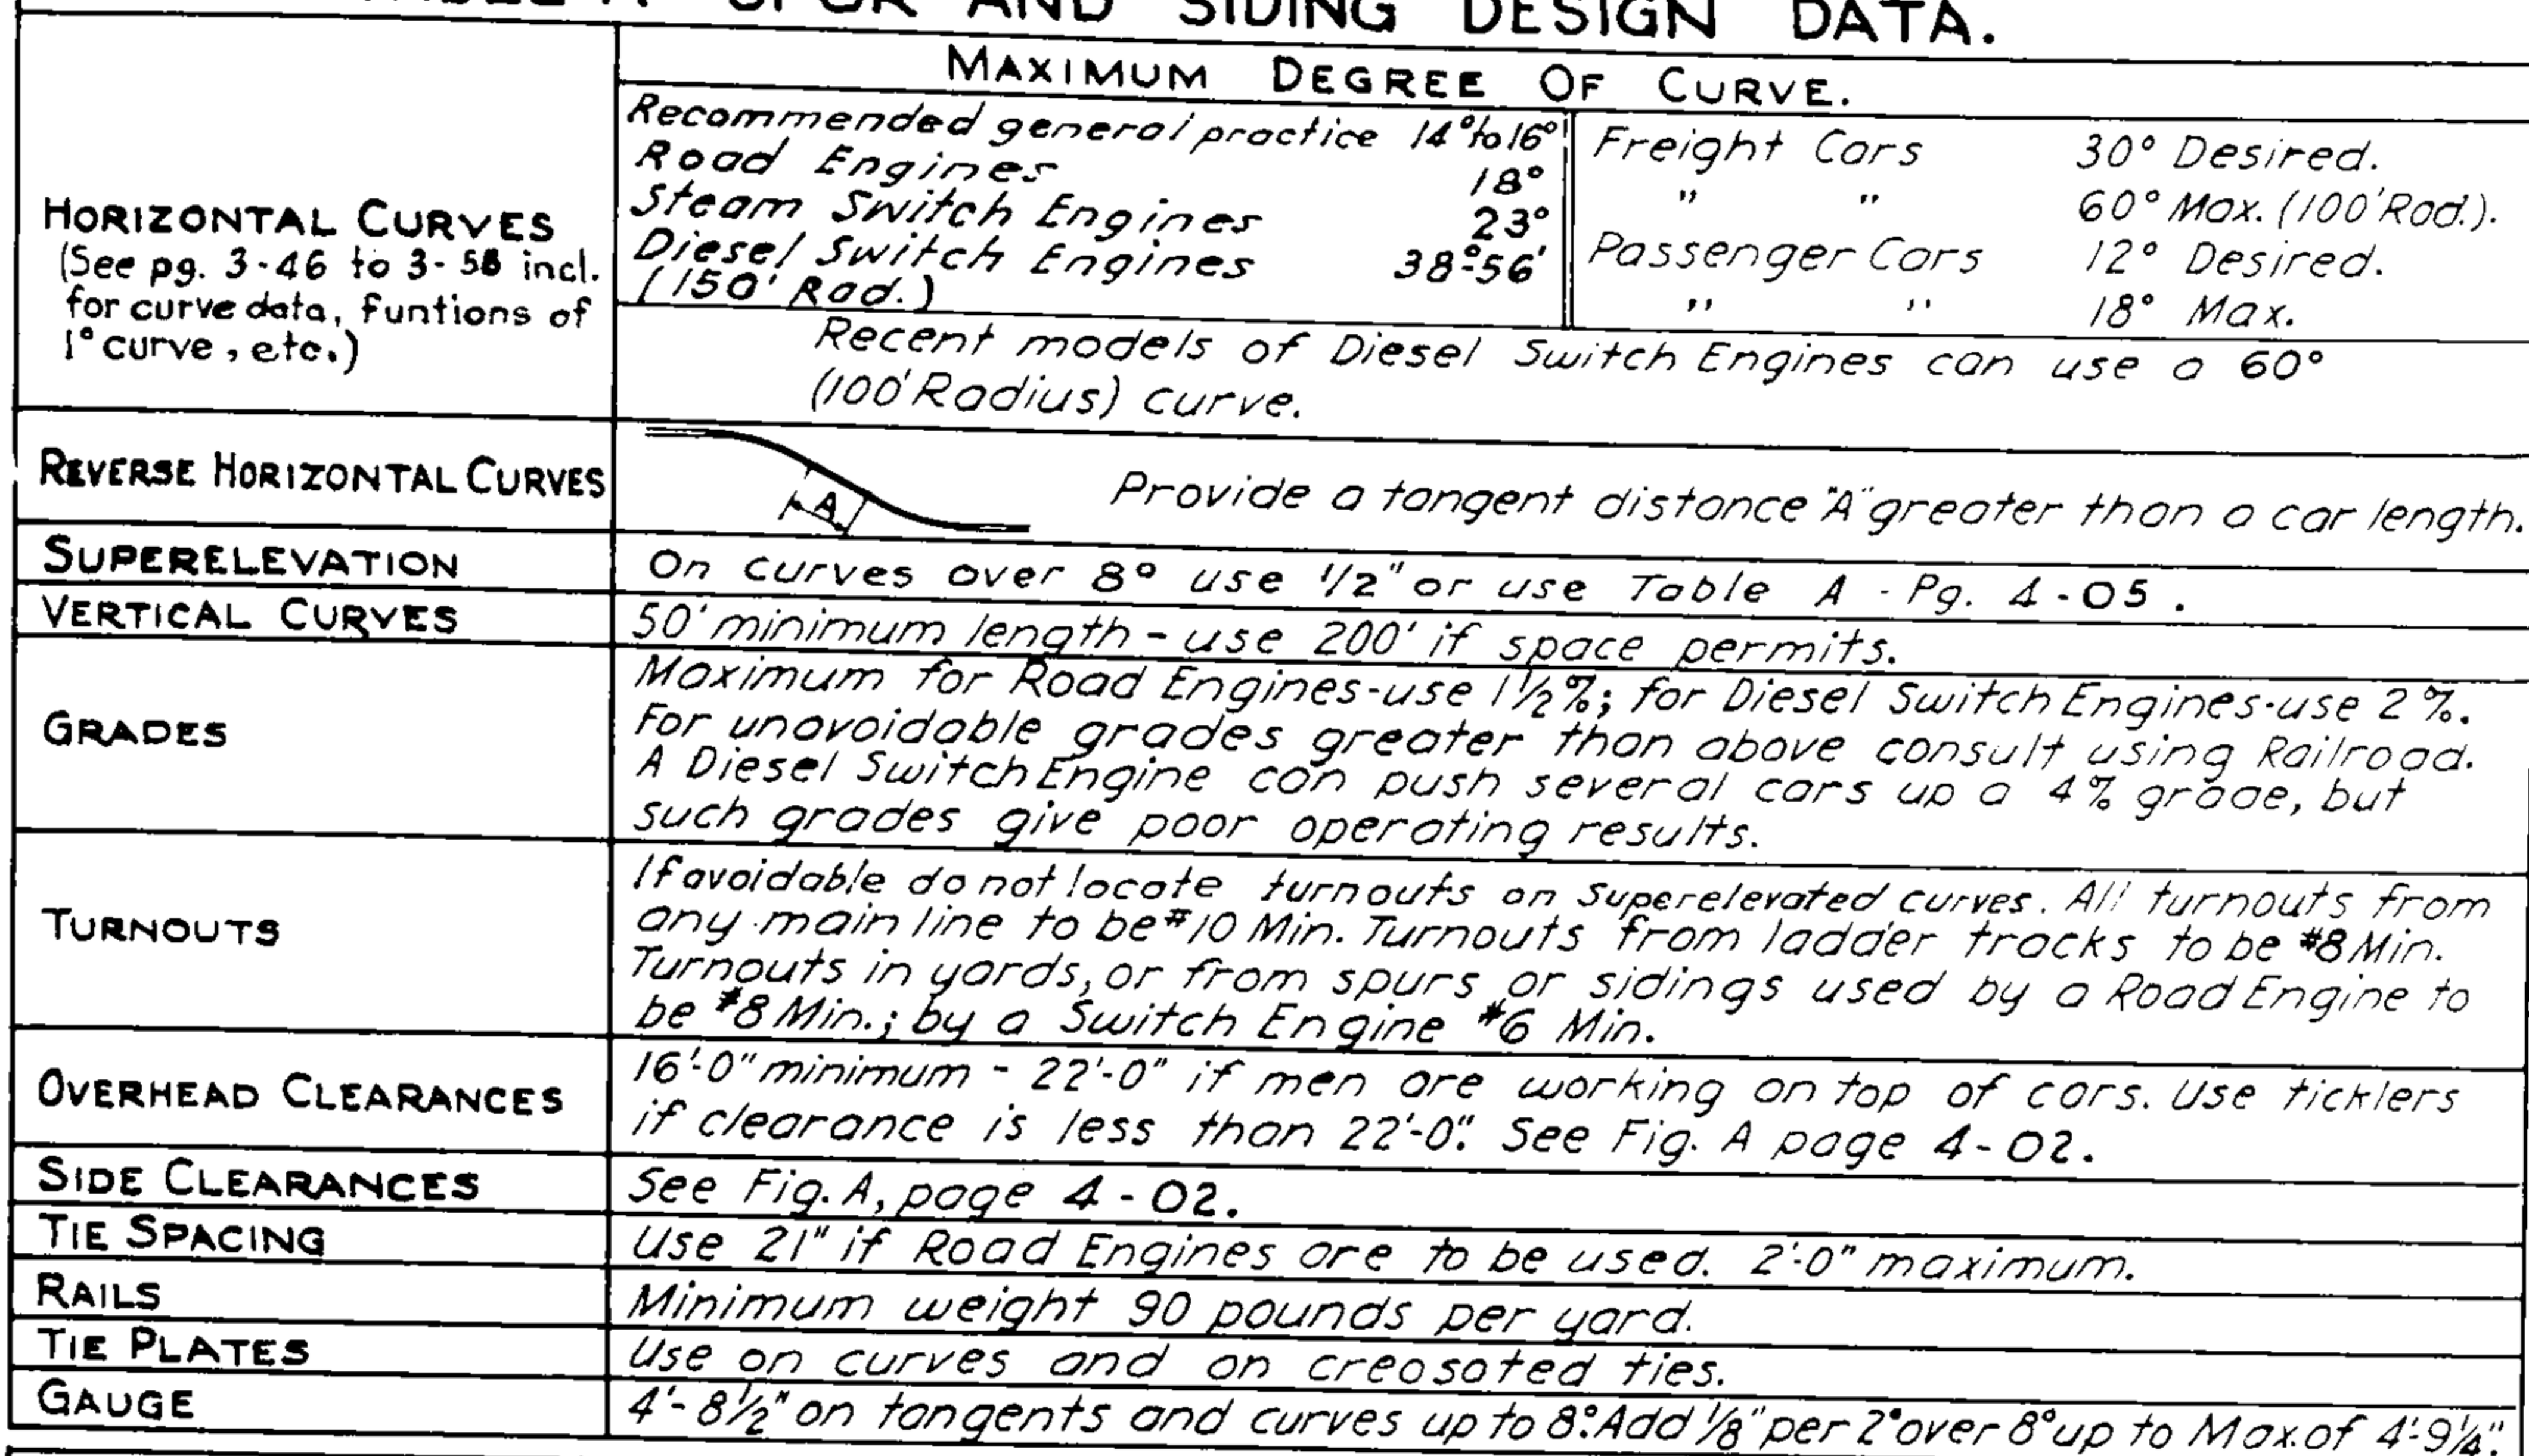 SPUR AND SIDING DESIGN DATA.
MAXIMUM DEGREE OF CURVE.
HORIZONTAL CURVES
(See pg. 3-46 to 3-58 incl.
for curve data, funtions of
1° curve, etc.)
Recommended general practice 14° to 16°
Road Engines 18°
Steam Switch Engines 23°
Diesel Switch Engines 38°-56'
(150' Rad.)
Freight Cars 30° Desired.
" " 60° Max. (100' Rad.).
Passenger Cars 12° Desired.
" " 18° Max.
Recent models of Diesel Switch Engines can use a 60°
(100' Radius) curve.
REVERSE HORIZONTAL CURVES
A
Provide a tangent distance "A" greater than a car length.
SUPERELEVATION
On curves over 8° use 1/2" or use Table A - Pg. 4-05.
VERTICAL CURVES
50' minimum length - use 200' if space permits.
GRADES
Maximum for Road Engines-use 1½%; for Diesel Switch Engines-use 2%.
For unavoidable grades greater than above consult using Railroad.
A Diesel Switch Engine can push several cars up a 4% grade, but
such grades give poor operating results.
TURNOUTS
If avoidable do not locate turnouts on superelevated curves. All turnouts from
any main line to be #10 Min. Turnouts from ladder tracks to be #8 Min.
Turnouts in yards, or from spurs or sidings used by a Road Engine to
be #8 Min.; by a Switch Engine #6 Min.
OVERHEAD CLEARANCES
16'-0" minimum - 22'-0" if men are working on top of cars. Use ticklers
if clearance is less than 22'-0". See Fig. A page 4-02.
SIDE CLEARANCES
See Fig. A, page 4-02.
TIE SPACING
Use 21" if Road Engines are to be used. 2'-0" maximum.
RAILS
Minimum weight 90 pounds per yard.
TIE PLATES
Use on curves and on creosoted ties.
GAUGE
4'-8½" on tangents and curves up to 8°. Add ⅛" per 2° over 8° up to Max. of 4'-9¼"